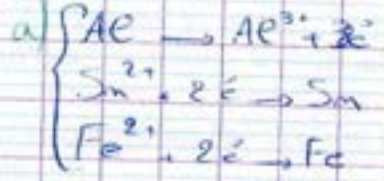 a) Al → Al³⁺ + 3e⁻
Sn²⁺ + 2e⁻ → Sn
Fe²⁺ + 2e⁻ → Fe